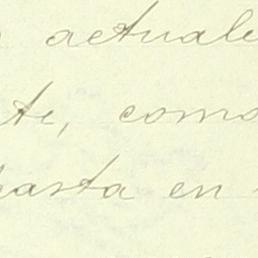 actuale
te, como
hasta en